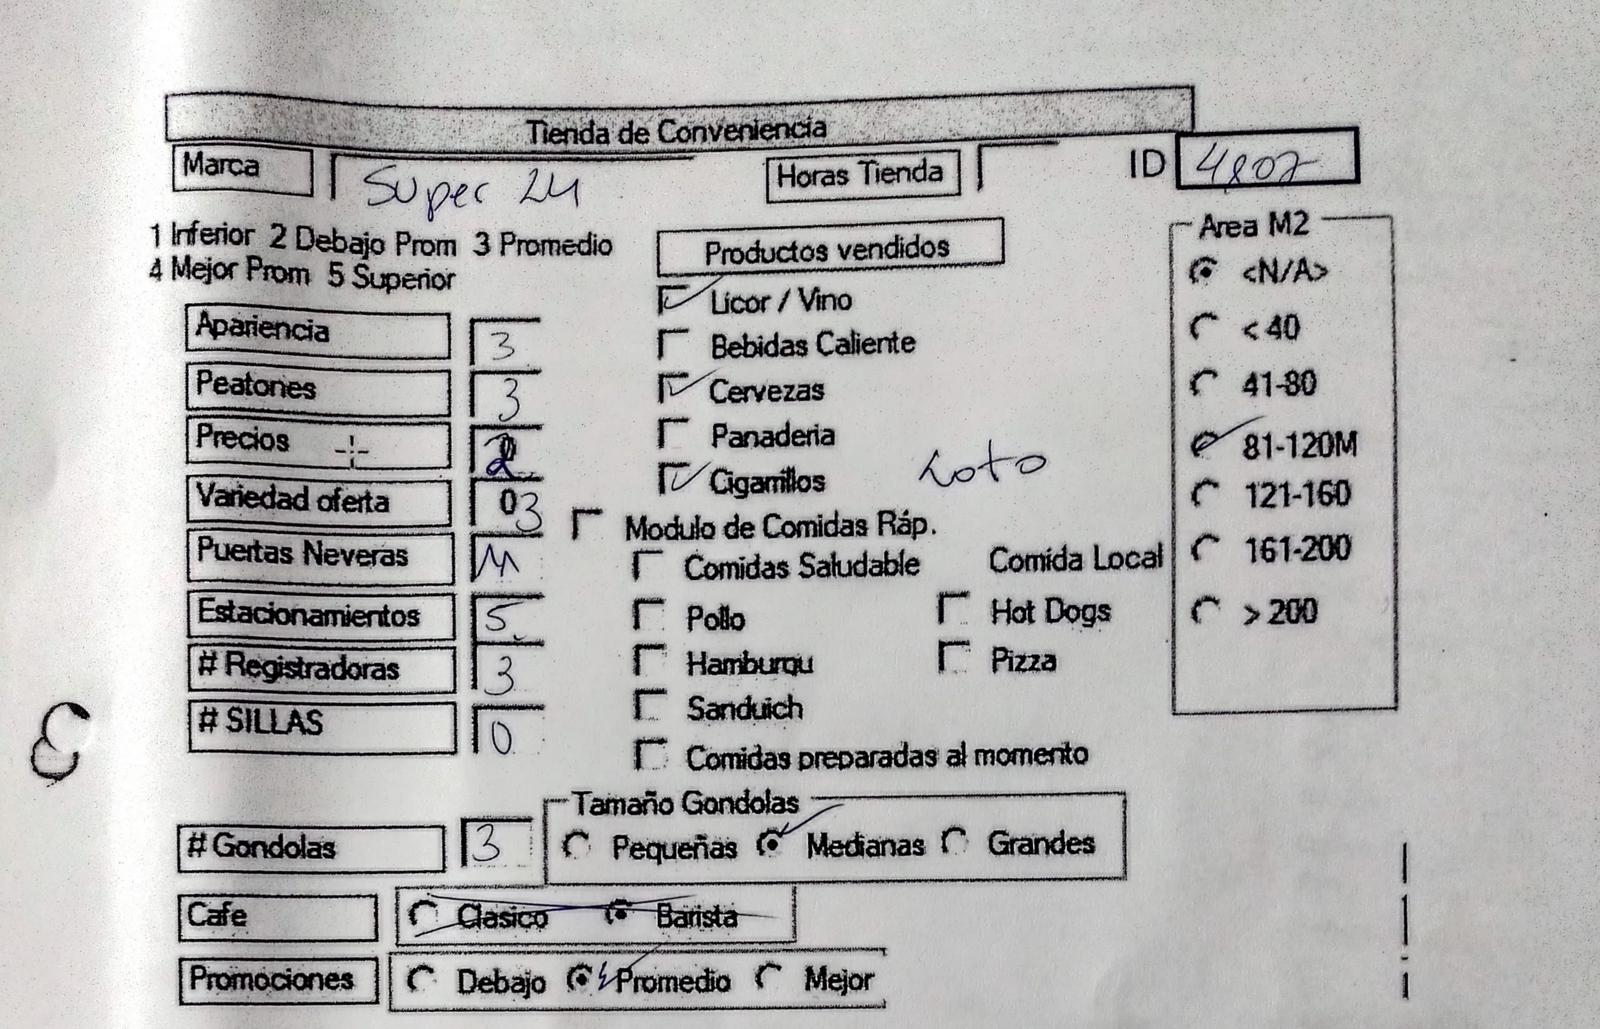 Tienda de Conveniencia
Marca Super 24 Horas Tienda ID 4807
1 Inferior 2 Debajo Prom 3 Promedio
4 Mejor Prom 5 Superior
Productos vendidos
Area M2
Licor / Vino
<N/A>
Apariencia 3
Bebidas Caliente
< 40
Peatones 3
Cervezas
41-80
Precios 2
Panaderia
81-120M
Variedad oferta 0 3
Cigarrillos
Loto
121-160
Modulo de Comidas Ráp.
Puertas Neveras
Comidas Saludable Comida Local
161-200
Estacionamientos 5
Pollo Hot Dogs
> 200
# Registradoras 3
Hamburqu Pizza
# SILLAS 0
Sanduich
Comidas preparadas al momento
3
Tamaño Gondolas
# Gondolas 3 Pequeñas Medianas Grandes
Cafe Clasico Barista
Promociones Debajo Promedio Mejor